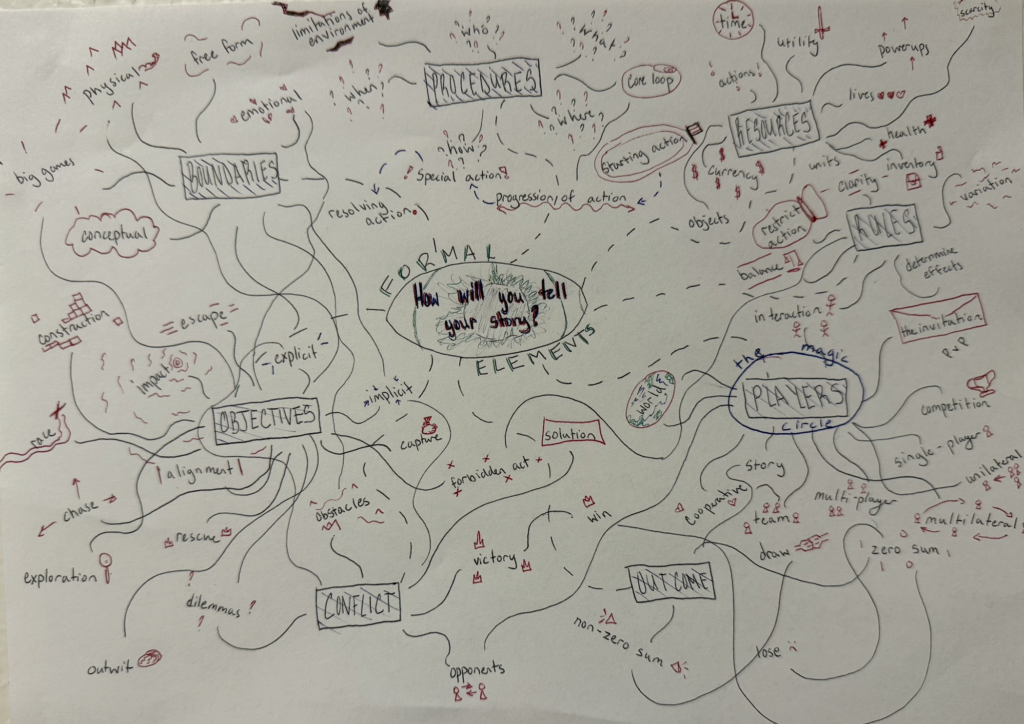 limitations of
environment
free form
physical
emotional
BOUNDARIES
big games
conceptual
who
what
when
PROCEDURES
where
how
core loop
Starting action
Special action
progression of action
resolving
action
time
utility
scarcity
powerups
actions
lives
RESOURCES
health
currency
units
inventory
objects
clarity
variation
restrict
action
RULES
balance
determine
effects
interaction
FORMAL
How will you tell
your story?
ELEMENTS
construction
escape
explicit
impacts
implicit
OBJECTIVES
race
alignment
capture
chase
rescue
exploration
outwit
solution
forbidden act
obstacles
dilemmas
CONFLICT
victory
win
opponents
world
the magic
PLAYERS
circle
the invitation
PvP
competition
single-player
unilateral
story
cooperative
team
multi-player
multilateral
draw
zero sum
OUTCOME
non-zero sum
lose